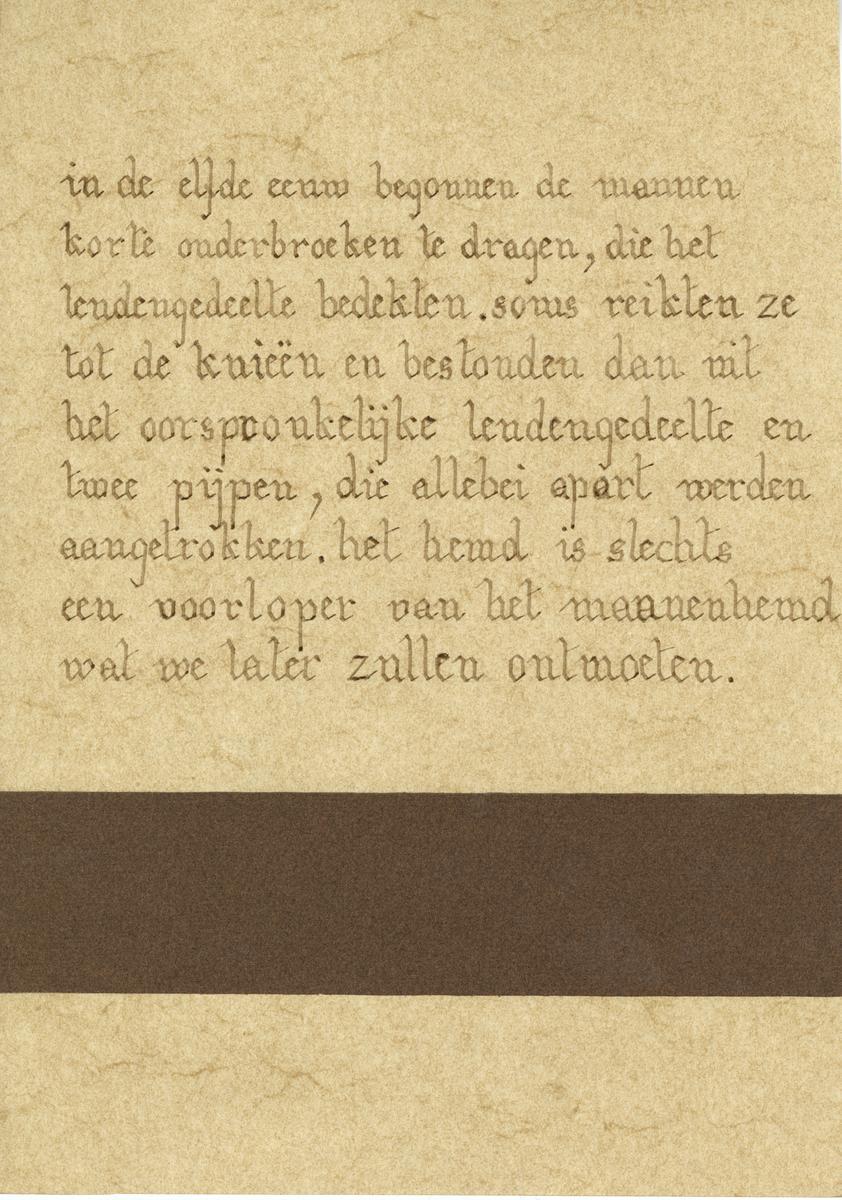 in de elfde eeuw begonnen de mannen
korte onderbroeken te dragen, die het
lendengedeelte bedekten. soms reikten ze
tot de knieën en bestonden dan uit
het oorspronkelijke lendengedeelte en
twee pijpen, die allebei apart werden
aangetrokken. het hemd is slechts
een voorloper van het mannenhemd
wat we later zullen ontmoeten.